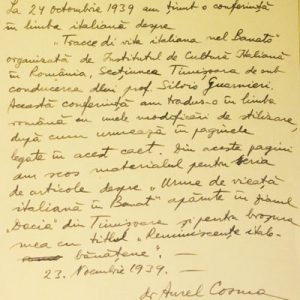 La 24 octombrie 1939 am ținut o conferință
în limba italiană despre
"Tracce di vita italiana nel Banato"
organizată de Institutul de Cultură Italiană
în România, Secțiunea Timișoara de sub
conducerea dlui prof. Silvio Guarnieri.
Această conferință am tradus-o în limba
română cu unele modificări de stilizare,
după cum urmează în paginele
legate în acest caet. Din aceste pagini
am scos materialul pentru seria
de articole despre "Urme de vieață
italiană în Banat" apărute în ziarul
"Dacia" din Timișoara și pentru broșura
mea cu titlul "Reminiscențe italo-
bănățene". —
23. Noembrie 1939. —
Dr. Aurel Cosma